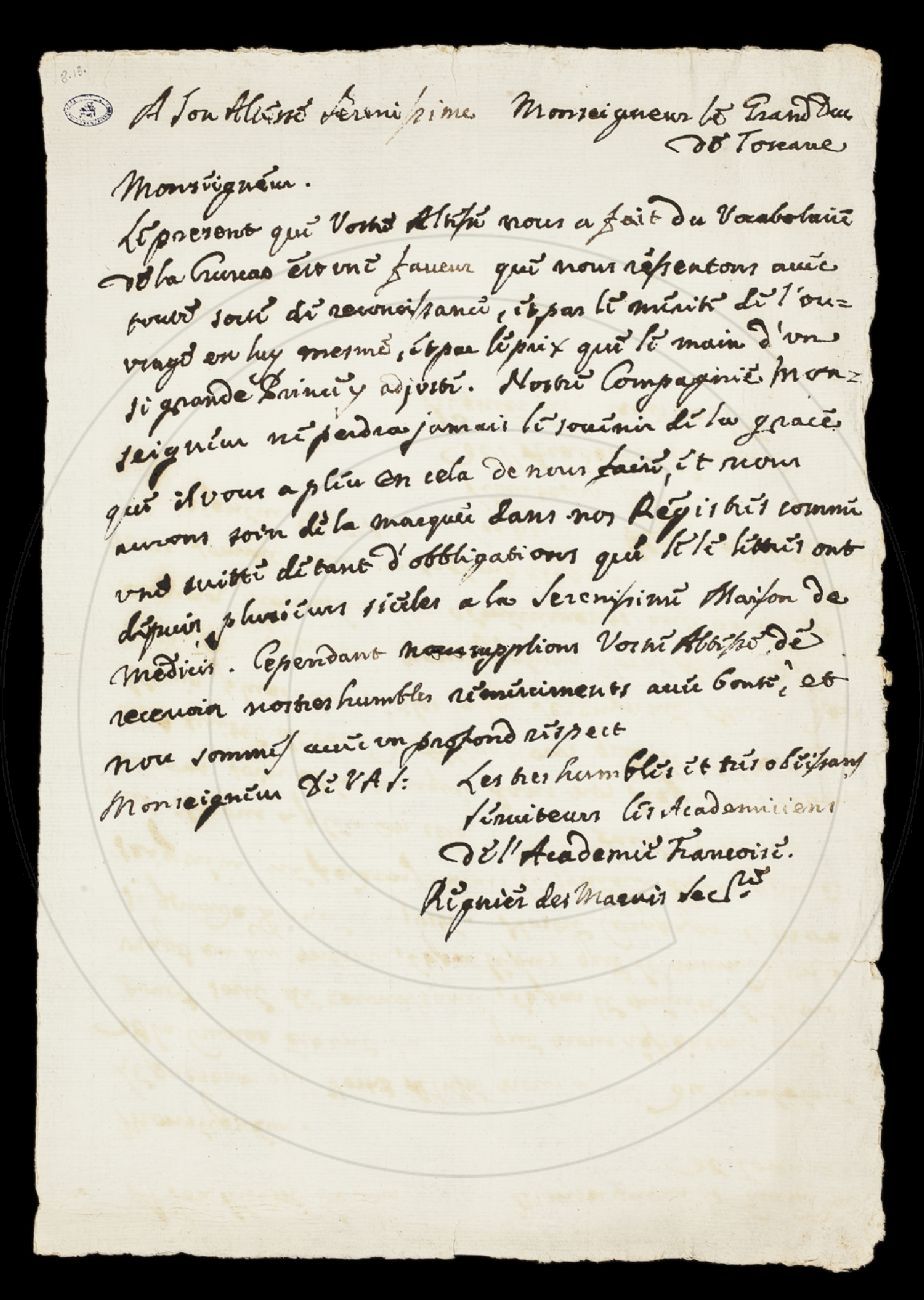 8.18.
A Son Altesse Serenissime Monseigneur le Grand Duc
de Toscane
Monseigneur.
Le present que Vostre Altesse nous a fait du Vocabolaire
de la Crusca est une faveur que nous ressentons avec
toute sorte de reconoissance, et par le merite de l'ou=
vrage en luy mesme, et par le prix que le main d'un
si grande Prince y adjoste. Nostre Compagnie Mon=
seigneur ne perdra jamais le souvenir de la grace
que il vous a pleu en cela de nous faire, et nous
aurons soin de la marquer dans nos Registres comme
une suitte de tant d'obbligations que le le lettres ont
depuis plusieurs siecles a la Serenissime Maison de
Medicis. Cependant supplions Vostre Altesse de
recevoir nostres humbles remerciments avec bonte, et
nou sommes avec un profond respect
Monseigneur De V A S: Les tres humbles et tres obeissans
Serviteurs les Academiciens
de l'Academie Francoise.
Regnier des Marais Sec.re